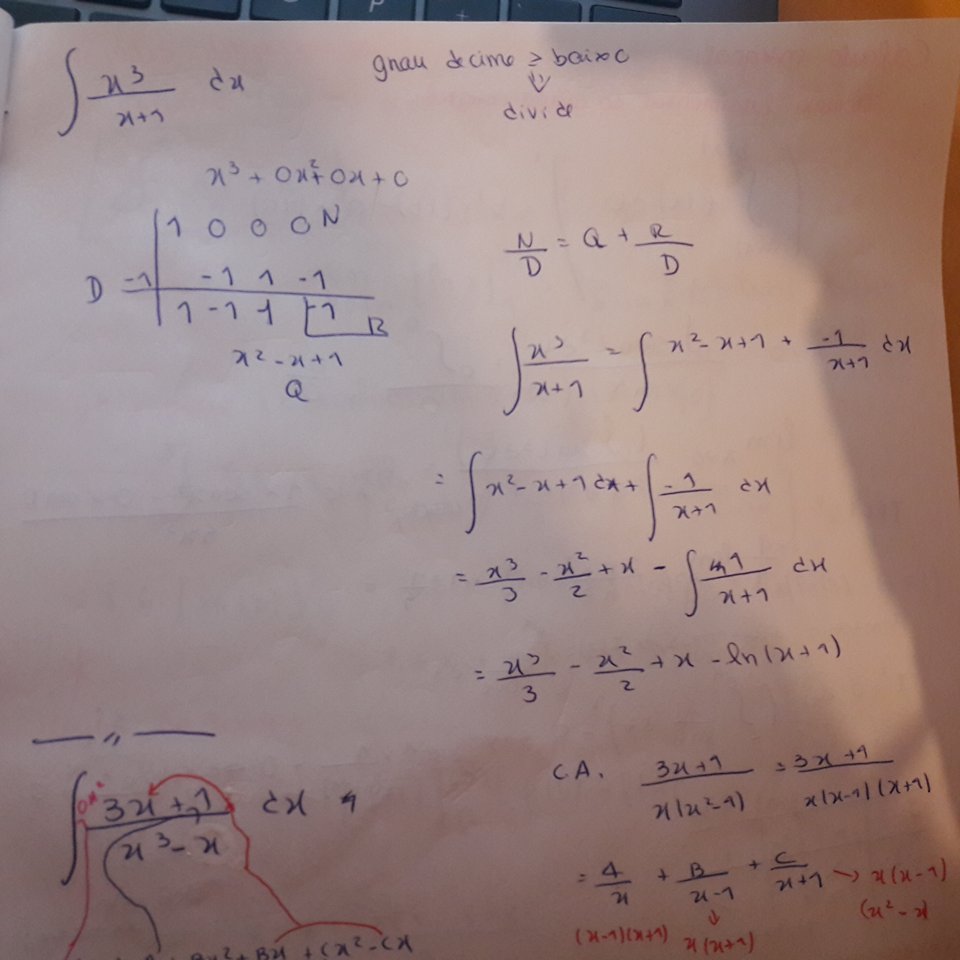 ∫ x³/(x+1) dx
grau de cima ≥ baixo
⇓
divide
x³ + 0x² + 0x + 0
1 0 0 0 N
D -1 | -1 1 -1
1 -1 1 -1 R
x² - x + 1
Q
N/D = Q + R/D
∫ x³/(x+1) = ∫ x² - x + 1 + -1/(x+1) dx
= ∫ x² - x + 1 dx + ∫ -1/(x+1) dx
= x³/3 - x²/2 + x - ∫ 1/(x+1) dx
= x³/3 - x²/2 + x - ln(x+1)
— // —
∫ 0x² 3x+1/(x³-x) dx
C.A. 3x+1/x(x²-1) = 3x+1/x(x-1)(x+1)
= A/x + B/(x-1) + C/(x+1) → x(x-1)
(x-1)(x+1) ↓ x(x+1) (x²-x)
+ Bx + Cx² - Cx